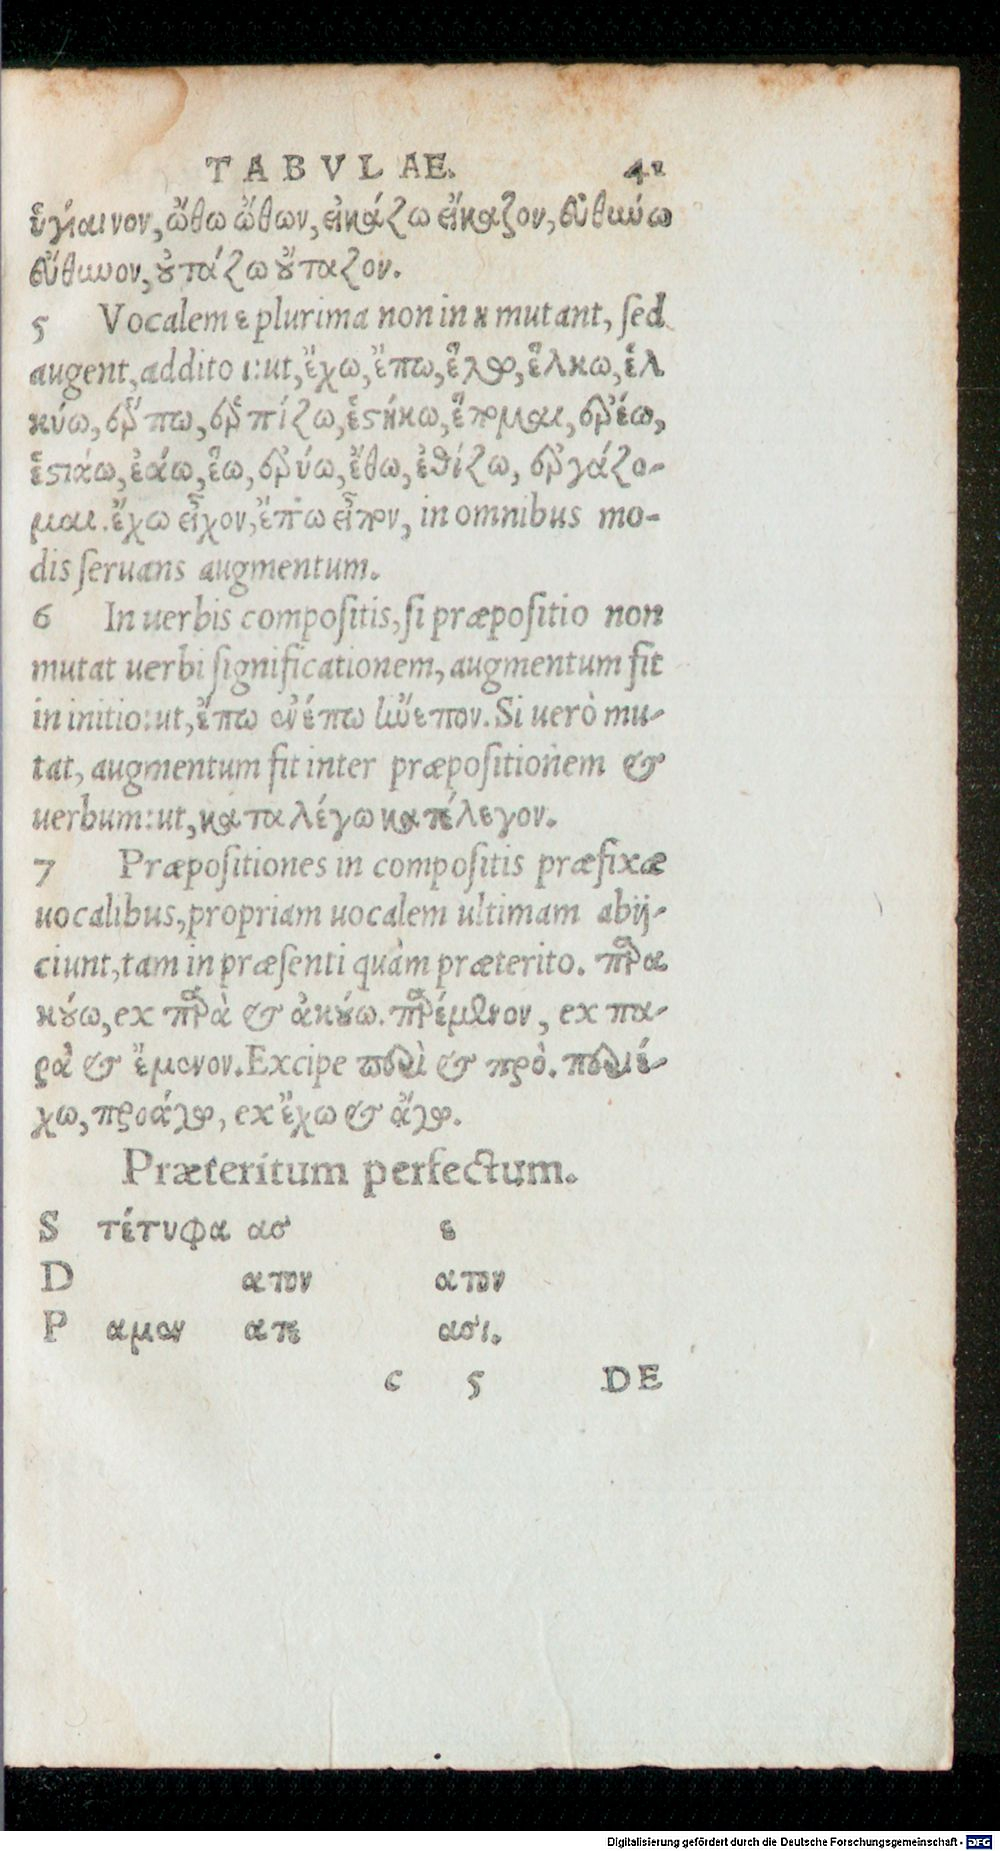 TABVLAE. 41
ὑγίαινον, ὤθω ὤθων, εἰκάζω εἴκαζον, εὐθύνω
εὔθυνον, οὐτάζω οὔταζον.
5 Vocalem ε plurima non in η mutant, sed
augent, addito ι: ut, ἔχω, ἔπω, ἕλκω, ἑλ
κύω, ἕρπω, ἑρπίζω, ἑστήκω, ἕπομαι, ἐρέω,
ἑστιάω, ἐάω, ἕω, ἐρύω, ἔθω, ἐθίζω, ἐργάζο-
μαι. ἔχω εἶχον, ἔπω εἶπον, in omnibus mo-
dis seruans augmentum.
6 In uerbis compositis, si præpositio non
mutat uerbi significationem, augmentum fit
in initio: ut, ἔπω ἐνέπω ἤνεπον. Si uerò mu-
tat, augmentum fit inter præpositionem &
uerbum: ut, καταλέγω κατέλεγον.
7 Præpositiones in compositis præfixæ
uocalibus, propriam uocalem ultimam abij-
ciunt, tam in præsenti quàm præterito. παρα
κούω, ex παρὰ & ἀκούω. παρέμενον, ex πα-
ρὰ & ἔμενον. Excipe περὶ & πρὸ. περιέ-
χω, προάγω, ex ἔχω & ἄγω.
Præteritum perfectum.
S τέτυφα ας ε
D ατον ατον
P αμεν ατε ασι.
c 5 DE
Digitalisierung gefördert durch die Deutsche Forschungsgemeinschaft - DFG